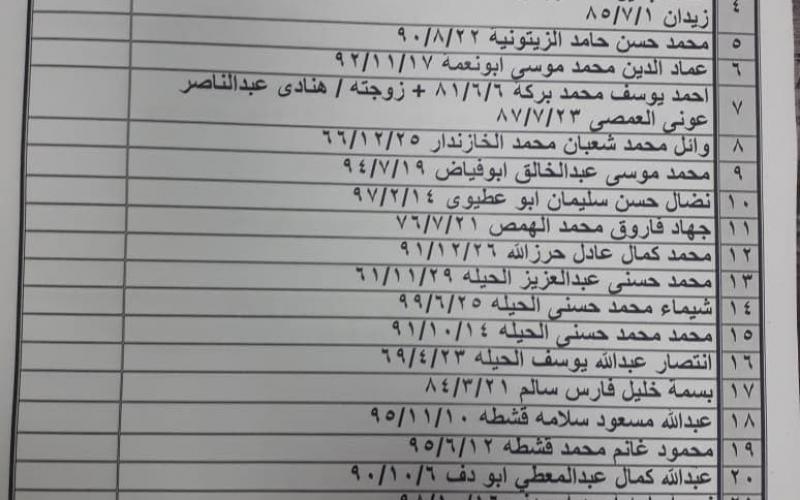 ٤ زيدان ٨٥/٧/١
٥ محمد حسن حامد الزيتونية ٩٠/٨/٢٢
٦ عماد الدين محمد موسى ابونعمة ٩٢/١١/١٧
٧ احمد يوسف محمد بركة ٨١/٦/٦ + زوجته / هنادى عبدالناصر
عوني العمصي ٨٧/٧/٢٣
٨ وائل محمد شعبان محمد الخازندار ٦٦/١٢/٢٥
٩ محمد موسى عبدالخالق ابوفياض ٩٤/٧/١٩
١٠ نضال حسن سليمان ابو عطيوى ٩٧/٢/١٤
١١ جهاد فاروق محمد الهمص ٧٦/٧/٢١
١٢ محمد كمال عادل حرزالله ٩١/١٢/٢٦
١٣ محمد حسني عبدالعزيز الحيله ٦١/١١/٢٩
١٤ شيماء محمد حسني الحيله ٩٩/٦/٢٥
١٥ محمد محمد حسني الحيله ٩١/١٠/١٤
١٦ انتصار عبدالله يوسف الحيله ٦٩/٤/٢٣
١٧ بسمة خليل فارس سالم ٨٤/٣/٢١
١٨ عبدالله مسعود سلامه قشطه ٩٥/١١/١٠
١٩ محمود غانم محمد قشطه ٩٥/٦/١٢
٢٠ عبدالله كمال عبدالمعطي ابو دف ٩٠/١٠/٦